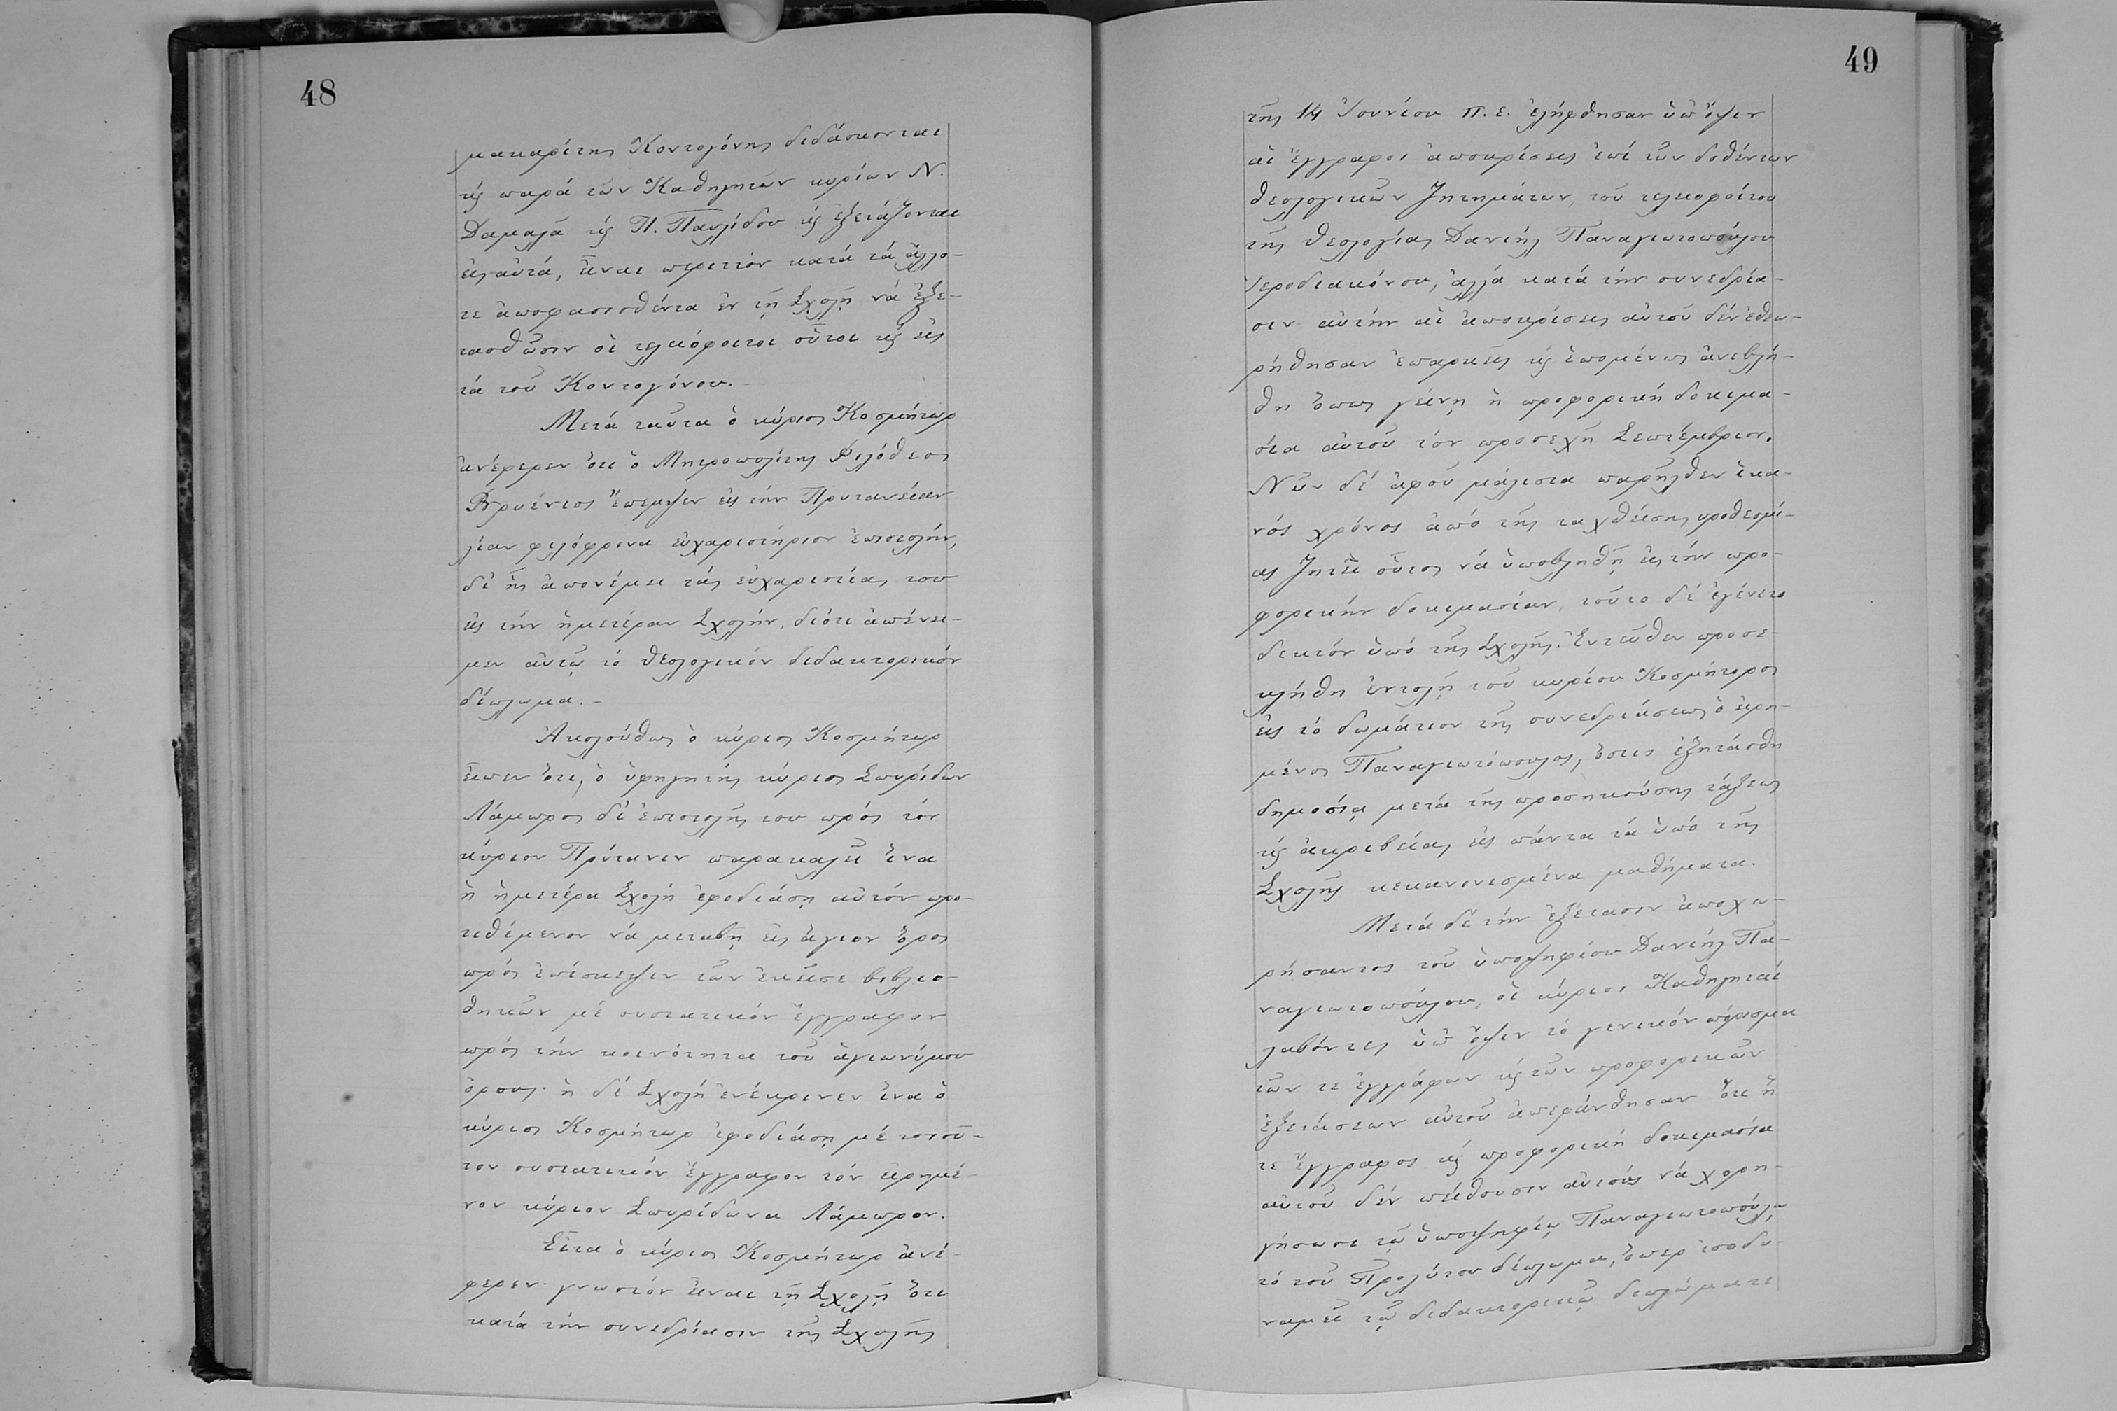 48
μακαρίτης Κοντογόνης διδάσκονται
κὶ παρὰ τῶν Καθηγητῶν κυρίων Ν.
Δαμαλᾶ κὶ Π. Παυλίδου κὶ ἐξετάζονται
εἰς αὐτά, εἶναι περιττὸν κατὰ τὰ ἄλλο-
τε ἀποφασισθέντα ἐν τῇ Σχολῇ νὰ ἐξε-
τασθῶσιν οἱ τελειόφοιτοι οὗτοι κὶ εἰς
τὰ τοῦ Κοντογόνου.-
Μετὰ ταῦτα ὁ κύριος Κοσμήτωρ
ἀνέφερεν ὅτι ὁ Μητροπολίτης Φιλόθεος
Βρυένιος ἔπεμψεν εἰς τὴν Πρυτανείαν
λίαν φιλόφρονα εὐχαριστήριον ἐπιστολήν,
δι' ἧς ἀπονέμει τὰς εὐχαριστίας του
εἰς τὴν ἡμετέραν Σχολήν, διότι ἀπένει-
μεν αὐτῷ τὸ θεολογικὸν διδακτορικὸν
δίπλωμα.-
Ἀκολούθως ὁ κύριος Κοσμήτωρ
εἶπεν ὅτι, ὁ ὑφηγητὴς κύριος Σπυρίδων
Λάμπρος δι' ἐπιστολῆς του πρὸς τὸν
κύριον Πρύτανιν παρακαλεῖ ἵνα
ἡ ἡμετέρα Σχολὴ ἐφοδιάσῃ αὐτὸν προ-
τιθέμενον νὰ μεταβῇ εἰς ἅγιον ὄρος
πρὸς ἐπίσκεψιν τῶν ἐκεῖσε βιβλιο-
θηκῶν μὲ συστατικὸν ἔγγραφον
πρὸς τὴν κοινότητα τοῦ ἁγιωνύμου
ὄρους· ἡ δὲ Σχολὴ ἐνέκρινεν ἵνα ὁ
κύριος Κοσμήτωρ ἐφοδιάσῃ μὲ τοιοῦ-
τον συστατικὸν ἔγγραφον τὸν εἰρημέ-
νον κύριον Σπυρίδωνα Λάμπρον.
Εἶτα ὁ κύριος Κοσμήτωρ ἀνέ-
φερεν γνωστὸν εἶναι τῇ Σχολῇ ὅτι
κατὰ τὴν συνεδρίασιν τῆς Σχολῆς
49
τῆς 14 Ἰουνίου π.ε. ἐλήφθησαν ὑπ' ὄψιν
αἱ ἔγγραφοι ἀποκρίσεις ἐπὶ τῶν δοθέντων
θεολογικῶν ζητημάτων, τοῦ τελειοφοίτου
τῆς θεολογίας Δανιὴλ Παναγιωτοπούλου
Ἱεροδιακόνου, ἀλλὰ κατὰ τὴν συνεδρία-
σιν αὐτὴν αἱ ἀποκρίσεις αὐτοῦ δὲν ἐθεω-
ρήθησαν ἐπαρκεῖς κὶ ἑπομένως ἀνεβλή-
θη ὅπως γείνῃ ἡ προφορικὴ δοκιμα-
σία αὐτοῦ τὸν προσεχῆ Σεπτέμβριον.
Νῦν δὲ ἀφοῦ μάλιστα παρῆλθεν ἱκα-
νὸς χρόνος ἀπὸ τῆς ταχθείσης προθεσμί-
ας ζητεῖ οὗτος νὰ ὑποβληθῇ εἰς τὴν προ-
φορικὴν δοκιμασίαν, τοῦτο δὲ ἐγένετο
δεκτὸν ὑπὸ τῆς Σχολῆς. Ἐντεῦθεν προσε-
κλήθη ἐντολῇ τοῦ κυρίου Κοσμήτορος
εἰς τὸ δωμάτιον τῆς συνεδριάσεως ὁ εἰρη-
μένος Παναγιωτόπουλος, ὅστις ἐξητάσθη
δημοσίᾳ μετὰ τῆς προσηκούσης τάξεως
κὶ ἀκριβείας εἰς πάντα τὰ ὑπὸ τῆς
Σχολῆς κεκανονισμένα μαθήματα.
Μετὰ δὲ τὴν ἐξέτασιν ἀποχω-
ρήσαντος τοῦ ὑποψηφίου Δανιὴλ Πα-
ναγιωτοπούλου, οἱ κύριοι Καθηγηταὶ
λαβόντες ὑπ' ὄψιν τὸ γενικὸν πόρισμα
τῶν τε ἐγγράφων κὶ τῶν προφορικῶν
ἐξετάσεων αὐτοῦ ἀπεφάνθησαν ὅτι ἥ
τε ἔγγραφος κὶ προφορικὴ δοκιμασία
αὐτοῦ δὲν πείθουσιν αὐτοὺς νὰ χορη-
γήσωσι τῷ ὑποψηφίῳ Παναγιωτοπούλῳ
τὸ τοῦ Προλύτου δίπλωμα, ὅπερ ἰσοδυ-
ναμεῖ τῷ διδακτορικῷ διπλώματι